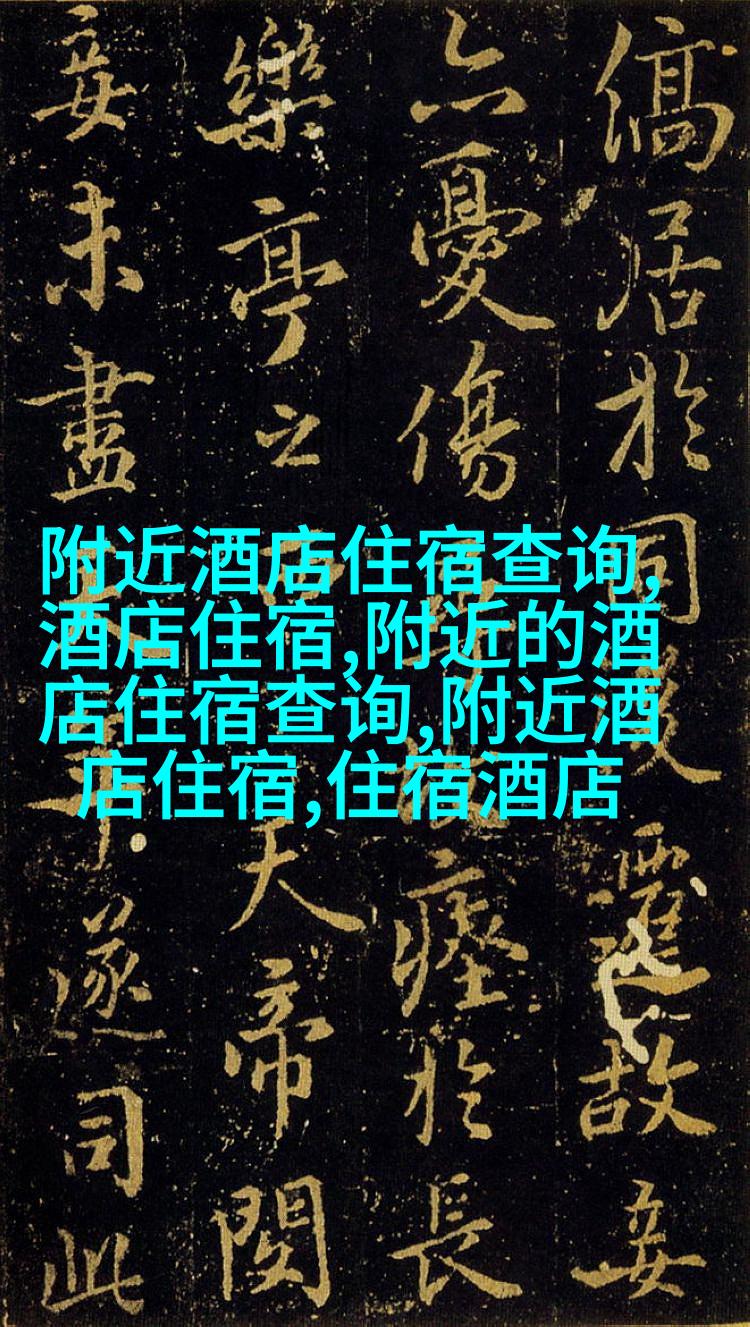 附近酒店住宿查询,
酒店住宿,附近的酒
店住宿查询,附近酒
店住宿,住宿酒店
居於同遷故妾
憂傷瘞於長
樂亭之西天帝閔
妾未盡遂司此